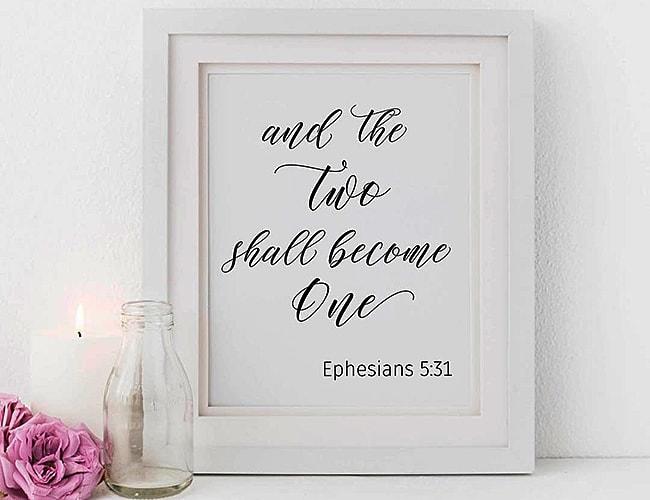 and the
Two
shall become
One
Ephesians 5:31